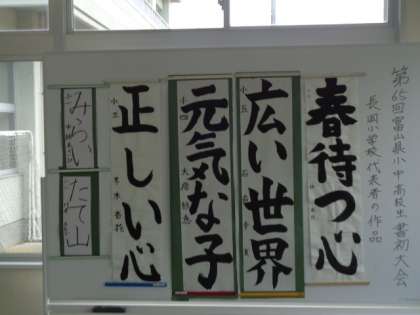 第65回富山県小中高校生書初大会
長岡小学校代表者の作品
春待つ心
広い世界
小五
元気な子
小四
正しい心
小三
みらい
たて山